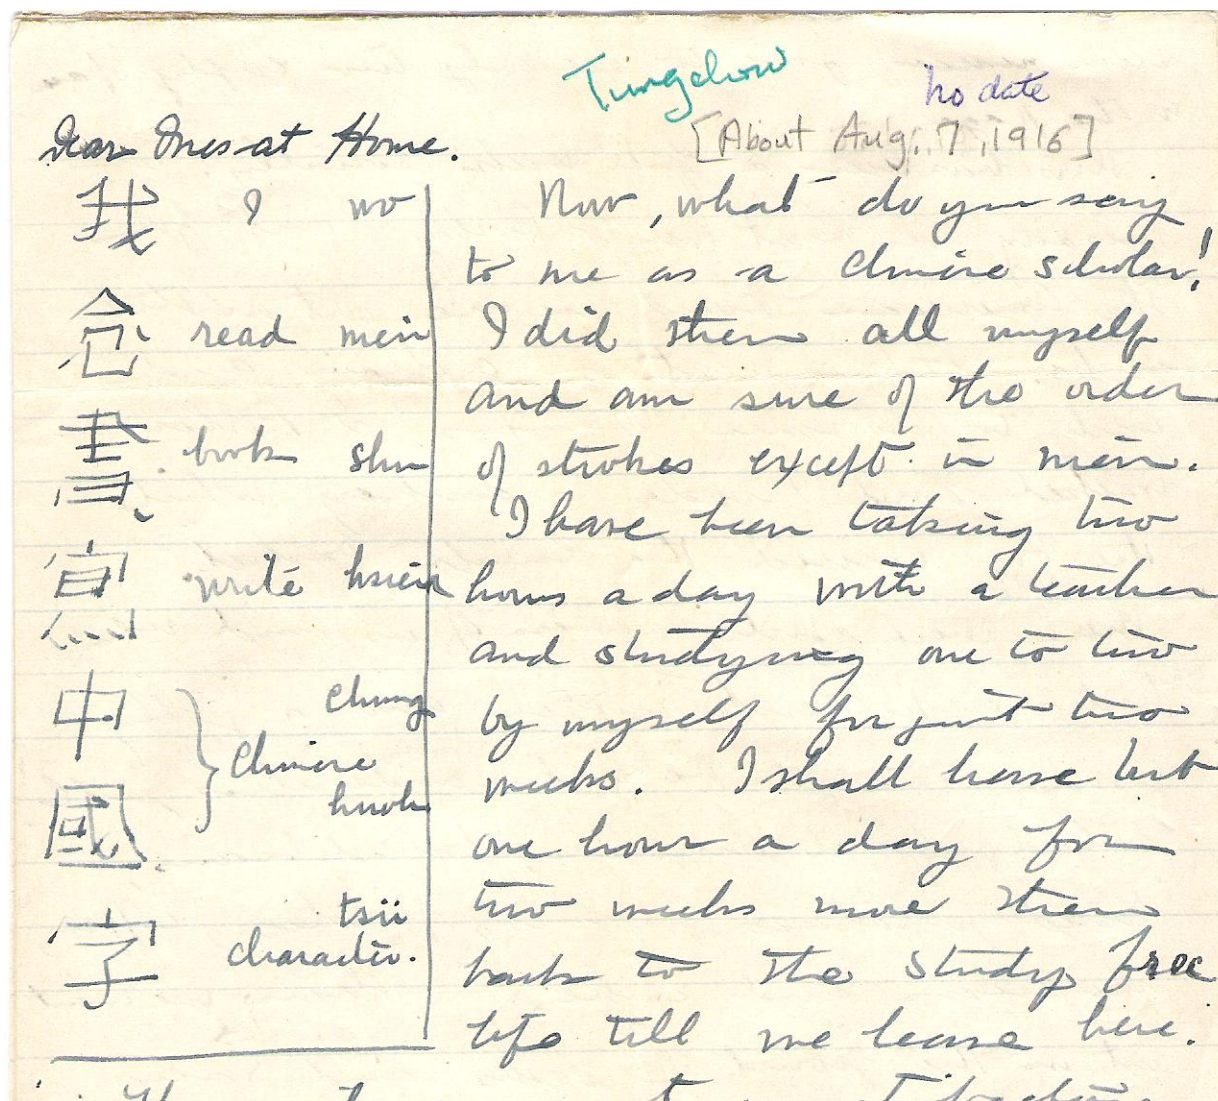 Tungchow
no date
[About Aug. 7, 1916]
Dear Ones at Home.
我 I wo
念 read nien
書 book shu
寫 write hsieh
中 chung
Chinese
國 kuoh
字 tsü
character.
Now, what do you say
to me as a Chinese scholar!
I did them all myself
and am sure of the order
of strokes except in nien.
I have been taking two
hours a day with a teacher
and studying one to two
by myself for just two
weeks. I shall have but
one hour a day for
two weeks more then
back to the study free
life till we leave here.